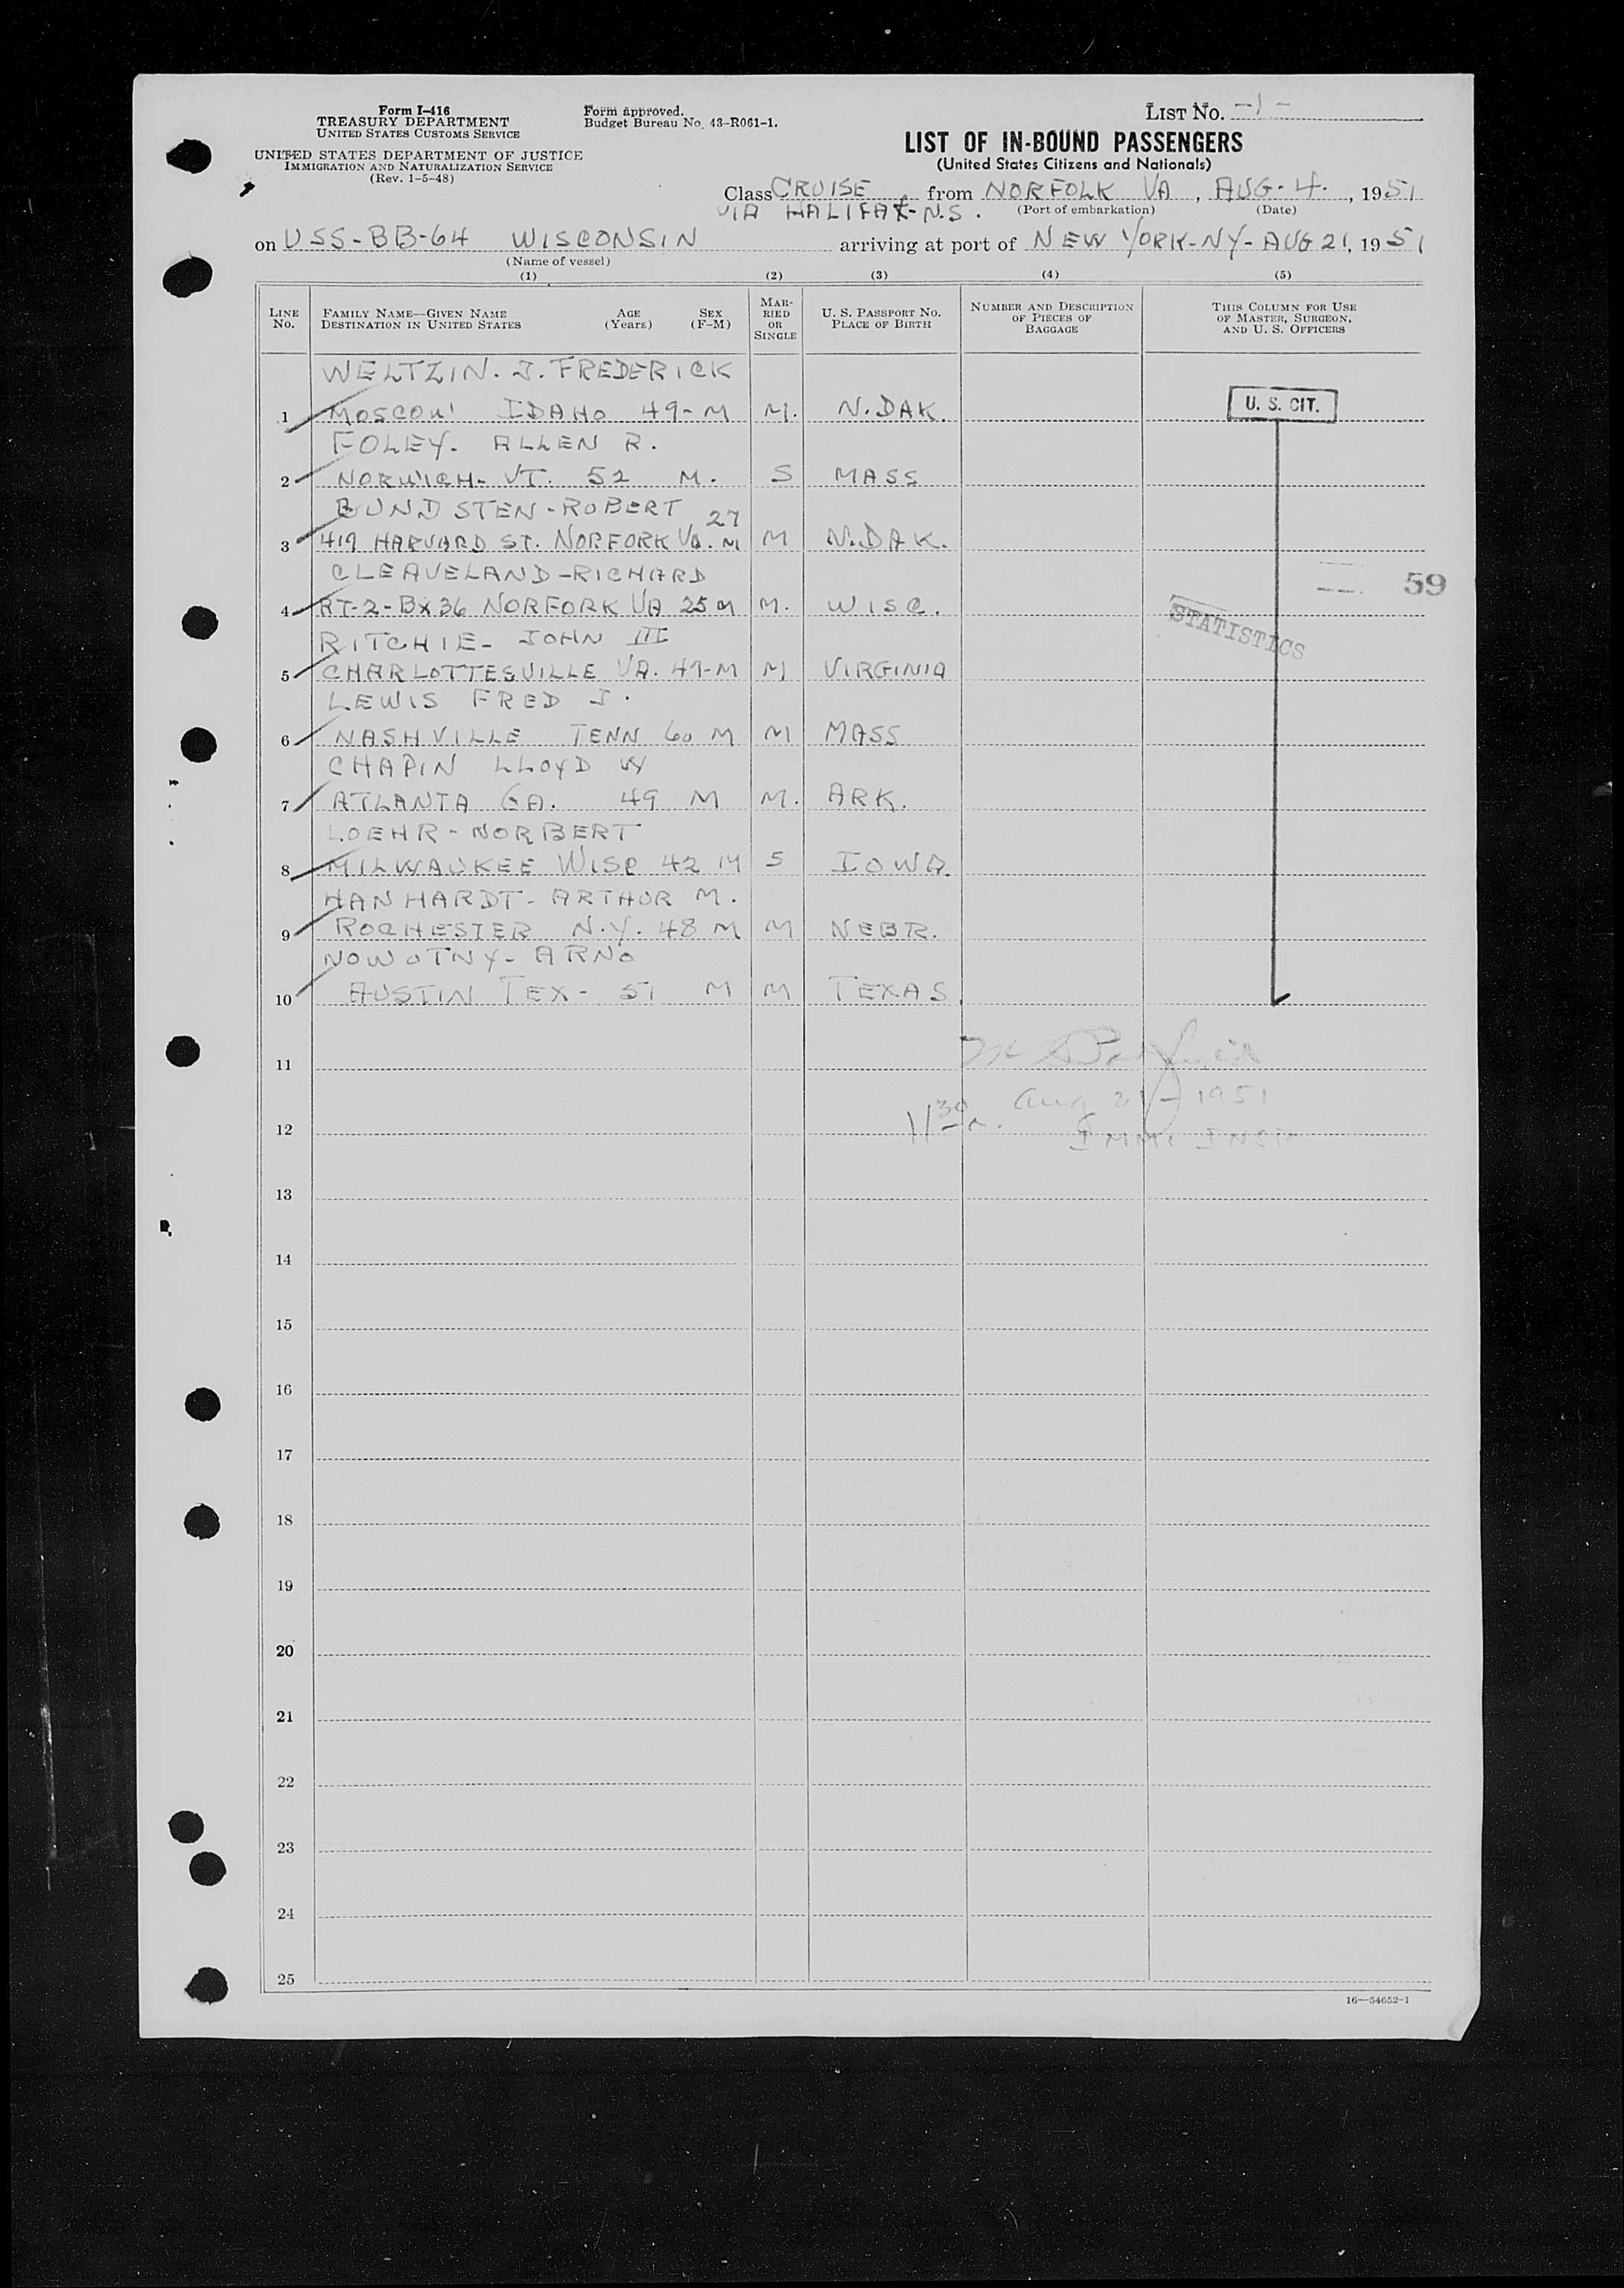 Form I-416
TREASURY DEPARTMENT
UNITED STATES CUSTOMS SERVICE
UNITED STATES DEPARTMENT OF JUSTICE
IMMIGRATION AND NATURALIZATION SERVICE
(Rev. 1-5-48)
Form approved.
Budget Bureau No. 43-R061-1.
LIST NO. -1-
LIST OF IN-BOUND PASSENGERS
(United States Citizens and Nationals)
Class CRUISE from NORFOLK VA, AUG-4., 1951
VIA HALIFAX-N.S. (Port of embarkation) (Date)
on USS-BB-64 WISCONSIN arriving at port of NEW YORK-NY-AUG 21, 1951
(Name of vessel)
(1) (2) (3) (4) (5)
LINE NO. FAMILY NAME—GIVEN NAME DESTINATION IN UNITED STATES AGE (Years) SEX (F-M) MARRIED OR SINGLE U. S. PASSPORT NO. PLACE OF BIRTH NUMBER AND DESCRIPTION OF PIECES OF BAGGAGE THIS COLUMN FOR USE OF MASTER, SURGEON, AND U. S. OFFICERS
WELTZIN. J. FREDERICK
1 MOSCOW IDAHO 49-M M. N.DAK. U. S. CIT.
FOLEY. ALLEN R.
2 NORWICH- VT. 52 M. S MASS
BUNDSTEN-ROBERT 27
3 419 HARVARD ST. NORFORK VA. M M N.DAK.
CLEAVELAND-RICHARD
4 RT-2-BX36 NORFORK VA 25 M M. WISC. 59
RITCHIE- JOHN III STATISTICS
5 CHARLOTTESVILLE VA. 47-M M VIRGINIA
LEWIS FRED J.
6 NASHVILLE TENN 60 M M MASS
CHAPIN LLOYD W
7 ATLANTA GA. 49 M M. ARK.
LOEHR-NORBERT
8 MILWAUKEE WISC 42 M S IOWA.
HANHARDT- ARTHUR M.
9 ROCHESTER N.Y. 48 M M NEBR.
NOWOTNY- ARNO
10 AUSTIN TEX- 51 M M TEXAS
11
1130 Aug 21-1951
12 IMMI INSP
13
14
15
16
17
18
19
20
21
22
23
24
25
16—54652-1